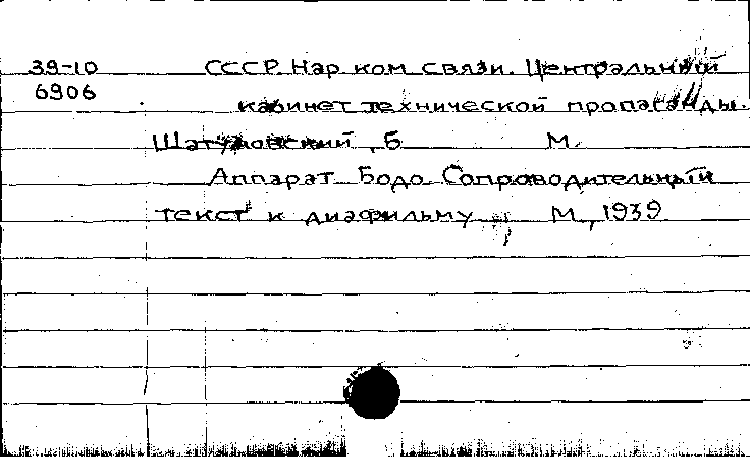 39-10 СССР. Нар. ком. связи. Центральный
6906 кабинет технической пропаганды.
Шатуновский, Б. М.
Аппарат Бодо. Сопроводительный
текст к диафильму. М., 1939